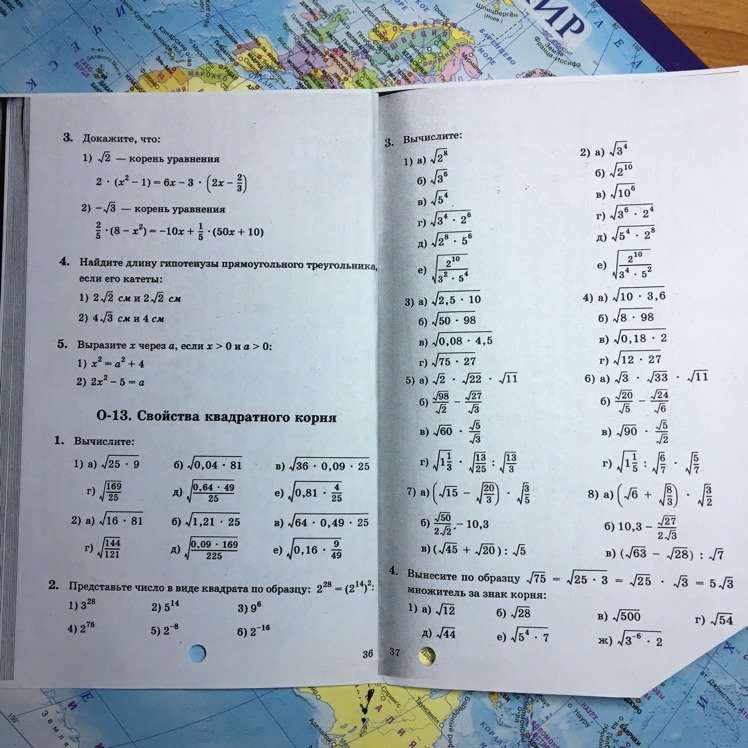 МИР
Шпицберген
(Норв.)
БАРЕНЦЕВО
МОРЕ
Земля
Франца-Иосифа
ШВЕЦИЯ
МАРОККО
3. Докажите, что:
1) √2 — корень уравнения
2 · (x² − 1) = 6x − 3 · (2x − 2/3)
2) −√3 — корень уравнения
2/5 · (8 − x²) = −10x + 1/5 · (50x + 10)
4. Найдите длину гипотенузы прямоугольного треугольника,
если его катеты:
1) 2√2 см и 2√2 см
2) 4√3 см и 4 см
5. Выразите x через a, если x > 0 и a > 0:
1) x² = a² + 4
2) 2x² − 5 = a
О-13. Свойства квадратного корня
1. Вычислите:
1) а) √(25 · 9) б) √(0,04 · 81) в) √(36 · 0,09 · 25)
г) √(169/25) д) √(0,64 · 49/25) е) √(0,81 · 4/25)
2) а) √(16 · 81) б) √(1,21 · 25) в) √(64 · 0,49 · 25)
г) √(144/121) д) √(0,09 · 169/225) е) √(0,16 · 9/49)
2. Представьте число в виде квадрата по образцу: 2²⁸ = (2¹⁴)²:
1) 3²⁸ 2) 5¹⁴ 3) 9⁶
4) 2⁷⁶ 5) 2⁻⁸ 6) 2⁻¹⁶
36
3. Вычислите:
1) а) √2⁸ 2) а) √3⁴
б) √3⁶ б) √2¹⁰
в) √5⁴ в) √10⁶
г) √(3⁴ · 2⁶) г) √(3⁶ · 2⁴)
д) √(2⁸ · 5⁶) д) √(5⁴ · 2⁸)
е) √(2¹⁰/(3² · 5⁴)) е) √(2¹⁰/(3⁴ · 5²))
3) а) √(2,5 · 10) 4) а) √(10 · 3,6)
б) √(50 · 98) б) √(8 · 98)
в) √(0,08 · 4,5) в) √(0,18 · 2)
г) √(75 · 27) г) √(12 · 27)
5) а) √2 · √22 · √11 6) а) √3 · √33 · √11
б) √98/√2 − √27/√3 б) √20/√5 − √24/√6
в) √60 · √5/√3 в) √90 · √5/√2
г) √(1 1/3) · √(13/25) : √(13/3) г) √(1 1/5) : √(6/7) · √(5/7)
7) а) (√15 − √(20/3)) · √(3/5) 8) а) (√6 + √(8/3)) · √(3/2)
б) √50/(2√2) − 10,3 б) 10,3 − √27/(2√3)
в) (√45 + √20) : √5 в) (√63 − √28) : √7
4. Вынесите по образцу √75 = √(25 · 3) = √25 · √3 = 5√3
множитель за знак корня:
1) а) √12 б) √28 в) √500 г) √54
д) √44 е) √(5⁴ · 7) ж) √(3⁻⁶ · 2)
37